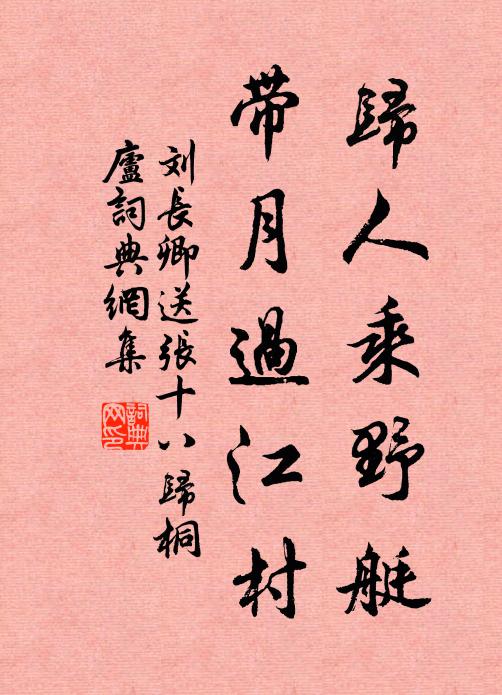 歸人乘野艇
带月過江村
刘長卿送張十八歸桐
廬詞典網集
詞典
网印